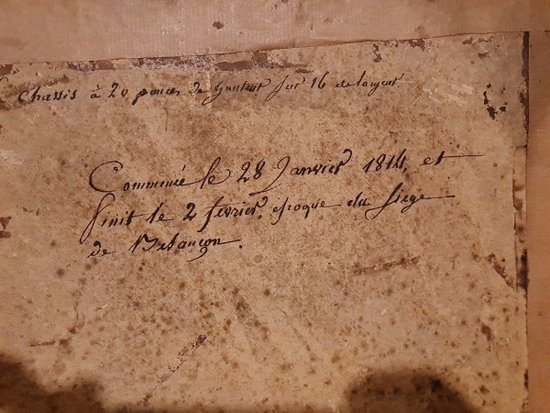 Chassis à 20 pouces de hauteur sur 16 de largeur
Commencé le 28 Janvier 1814, et
finit le 2 fevrier, epoque du siege
de Besançon.